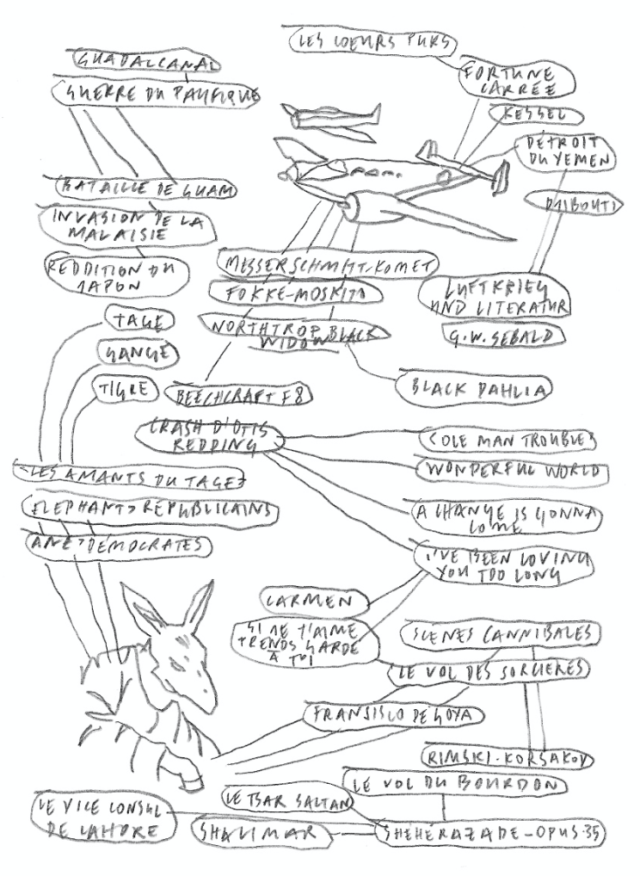 LES COEURS PURS
GUADALCANAL
GUERRE DU PACIFIQUE
FORTUNE
CARRÉE
KESSEL
DÉTROIT
DU YEMEN
DJIBOUTI
BATAILLE DE GUAM
INVASION DE LA
MALAISIE
REDDITION DU
JAPON
MESSERSCHMITT-KOMET
FOKKE-MOSKITO
NORTHTROP BLACK
WIDOW
BEECHCRAFT F8
LUFTKRIEG
UND LITERATUR
G.W. SEBALD
BLACK DAHLIA
TAGE
GANGE
TIGRE
CRASH D'OTIS
REDDING
COLE MAN TROUBLES
WONDERFUL WORLD
A CHANGE IS GONNA
COME
I'VE BEEN LOVING
YOU TOO LONG
LES AMANTS DU TAGE
ELEPHANT>REPUBLICAINS
ANE>DÉMOCRATES
CARMEN
SI JE T'AIME
PRENDS GARDE
À TOI
SCENES CANNIBALES
LE VOL DES SORCIERES
FRANSISCO DE GOYA
RIMSKI-KORSAKOV
LE VOL DU BOURDON
LE TSAR SALTAN
LE VICE CONSUL
DE LAHORE
SHALIMAR
SHÉHÉRAZADE-OPUS.35